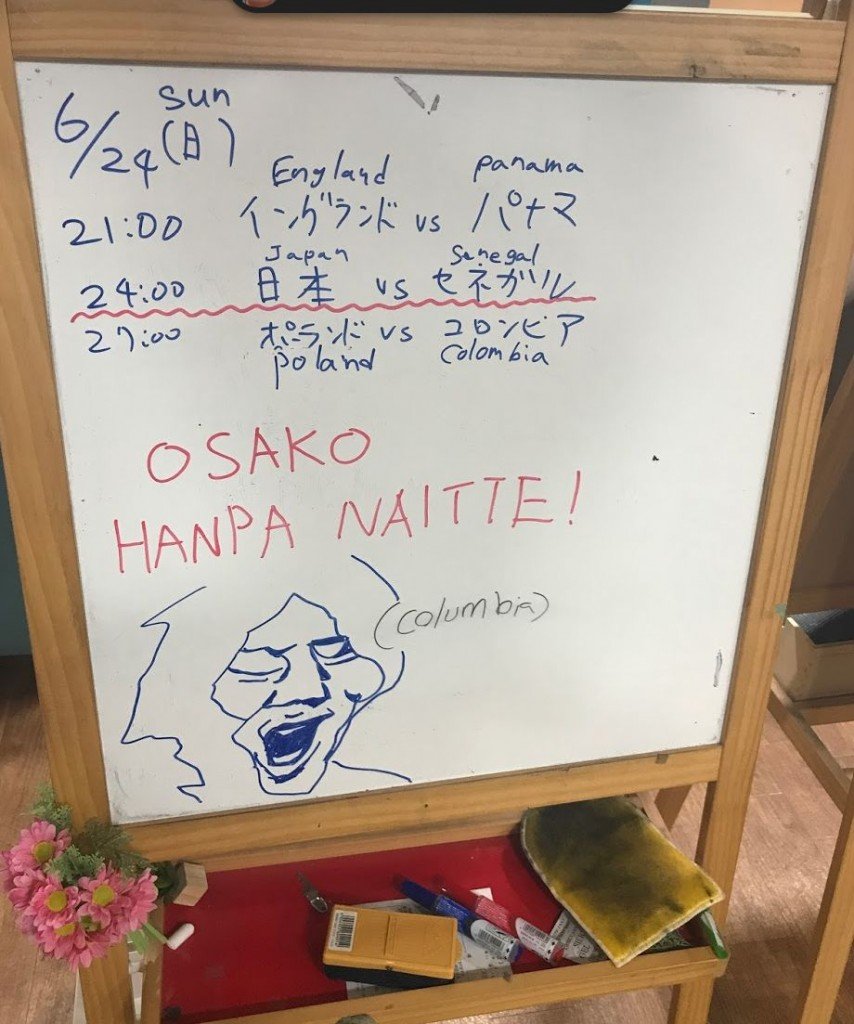 sun
6/24(日)
England panama
21:00 イングランド vs パナマ
Japan Senegal
24:00 日本 vs セネガル
27:00 ポーランド vs コロンビア
poland colombia
OSAKO
HANPA NAITTE!
(columbia)